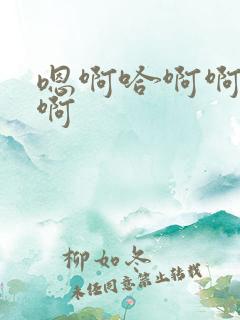 嗯啊哈啊啊
啊
柳如冬
未经同意禁止转载